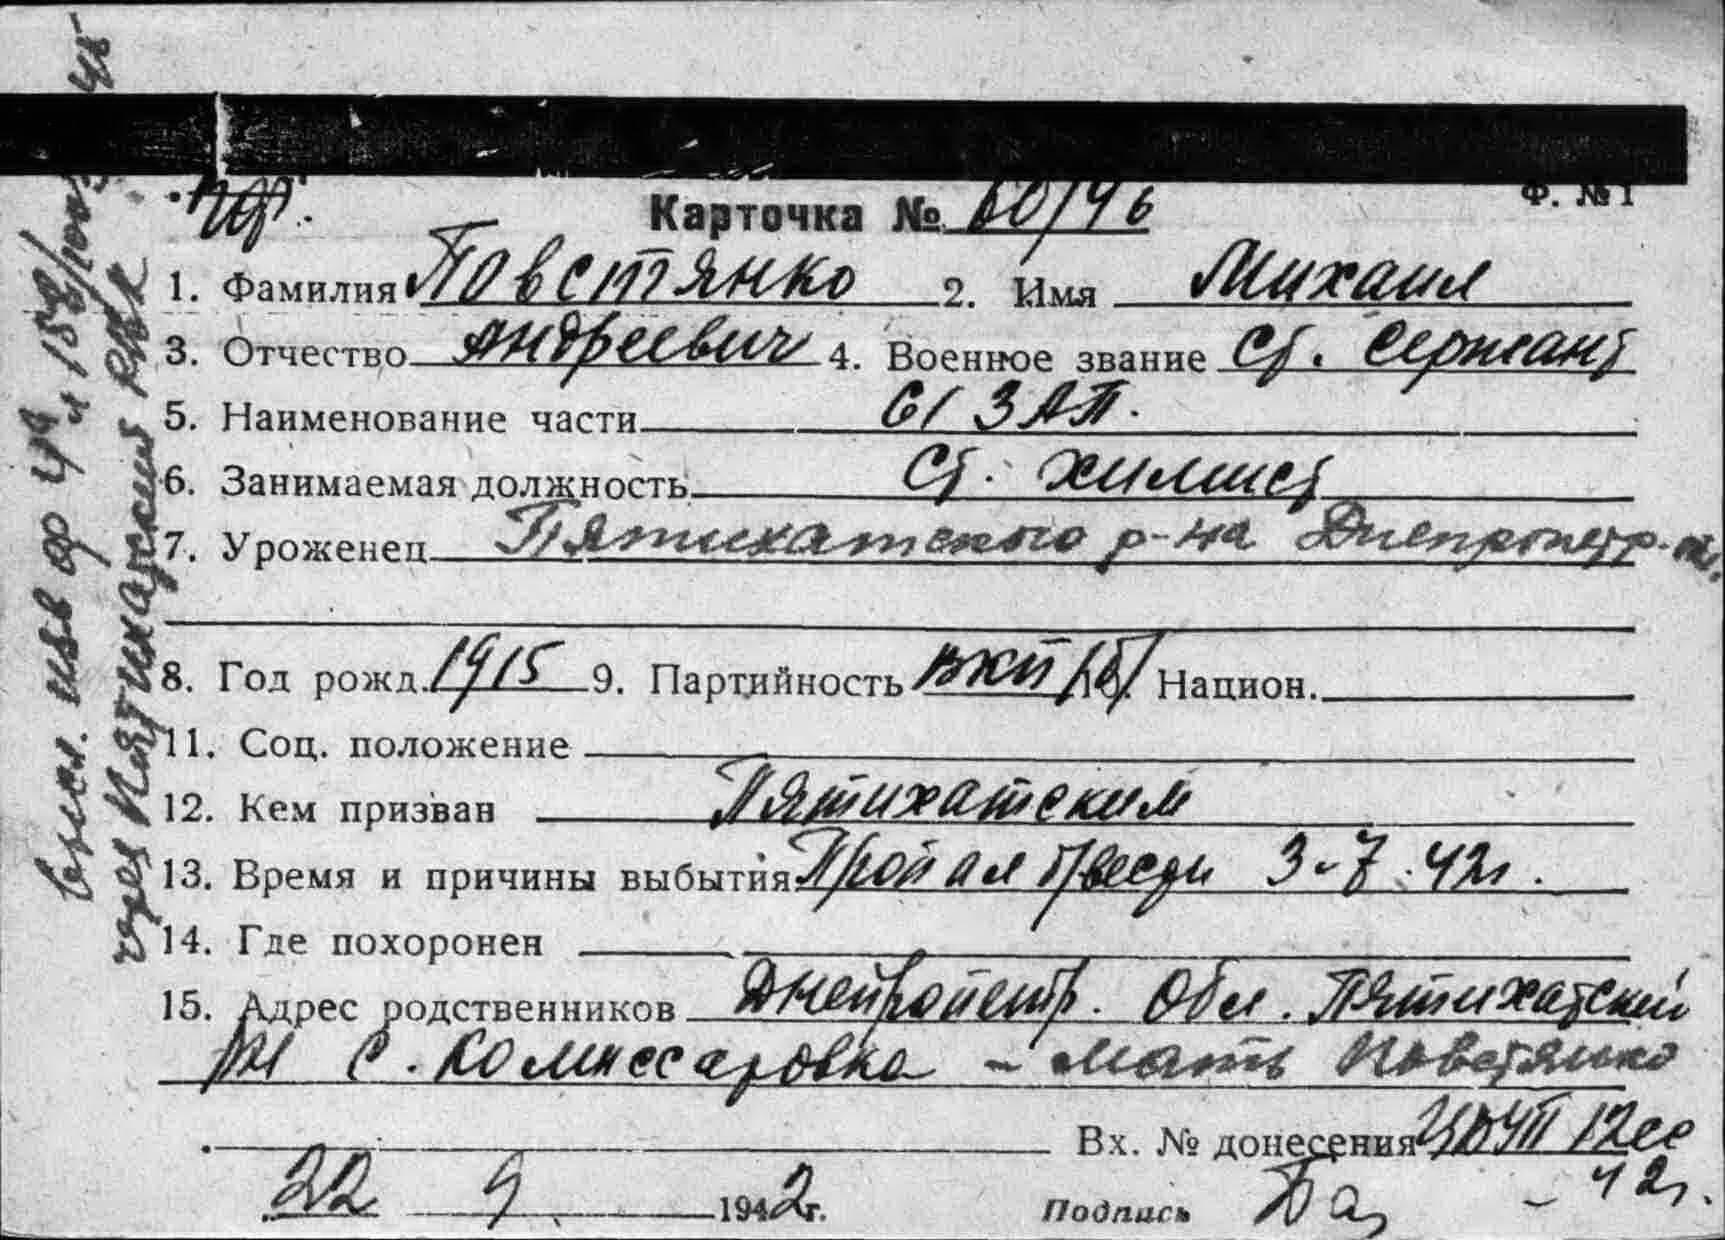 Ф. №1
Карточка № 60/46
1. Фамилия Повстянко 2. Имя Михаил
3. Отчество Андреевич 4. Военное звание Ст. сержант
5. Наименование части 61 ЗАП.
6. Занимаемая должность Ст. химист
7. Уроженец Пятихатского р-на Днепропетр. об.
8. Год рожд. 1915 9. Партийность ВКП/б/ 10. Национ.
11. Соц. положение
12. Кем призван Пятихатским
13. Время и причины выбытия Пропал б/вести 3-7.42г.
14. Где похоронен
15. Адрес родственников Днепропетр. Обл. Пятихатский
рн с. Комиссаровка - мать Повстянко
Вх. № донесения
22 9 1942г. Подпись - 42г.
высл. изв ф 4 № 45
через Пятихатский РВК